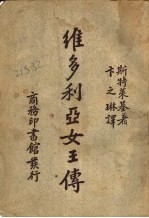 斯特萊基著
卞之琳譯
維多利亞女王傳
商務印書館發行